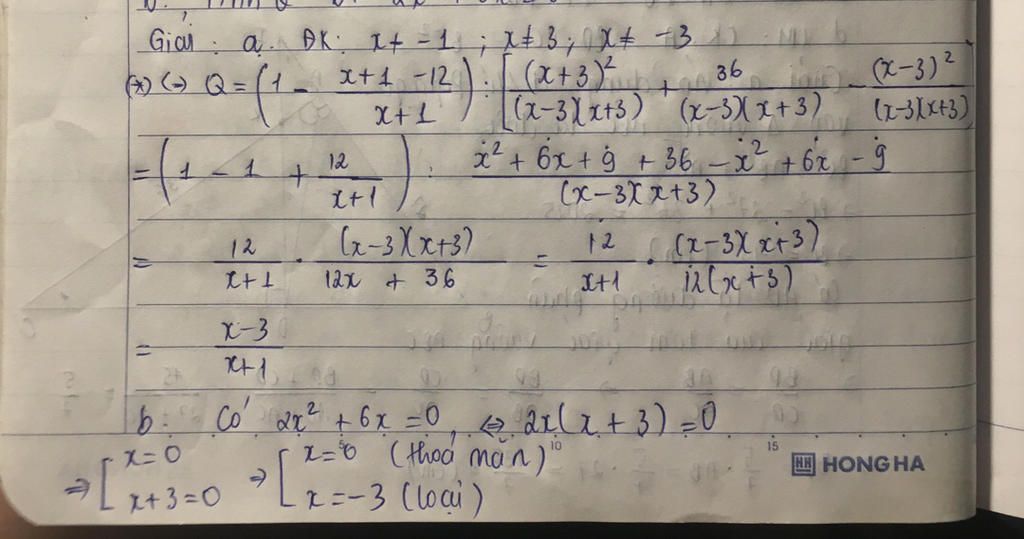 Giải : a. ĐK: x ≠ -1 ; x ≠ 3 ; x ≠ -3
(*) (-) Q = (1 - (x+1-12)/(x+1)) : [(x+3)²/((x-3)(x+3)) + 36/((x-3)(x+3)) - (x-3)²/((x-3)(x+3))
= (1 - 1 + 12/(x+1)) : (x² + 6x + 9 + 36 - x² + 6x - 9)/((x-3)(x+3))
= 12/(x+1) . ((x-3)(x+3))/(12x + 36) = 12/(x+1) . ((x-3)(x+3))/(12(x+3))
= (x-3)/(x+1)
b: Có 2x² + 6x = 0, ⇔ 2x(x+3) = 0
⇒ [ x=0 ⇒ [ x=0 (thoả mãn)
x+3=0 x=-3 (loại)
5 10 15
HH HONG HA